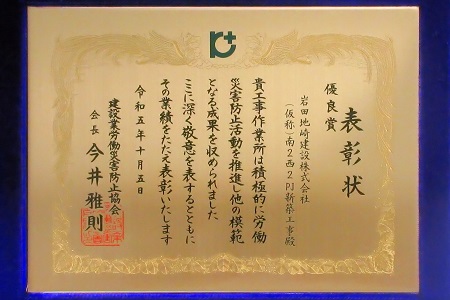 表彰状
優良賞
岩田地崎建設株式会社
(仮称)南2西2PJ新築工事殿
貴工事作業所は積極的に労働
災害防止活動を推進し他の模範
となる成果を収められました
ここに深く敬意を表するとともに
その業績をたたえ表彰いたします
令和五年十月五日
建設業労働災害防止協会
会長 今井雅則